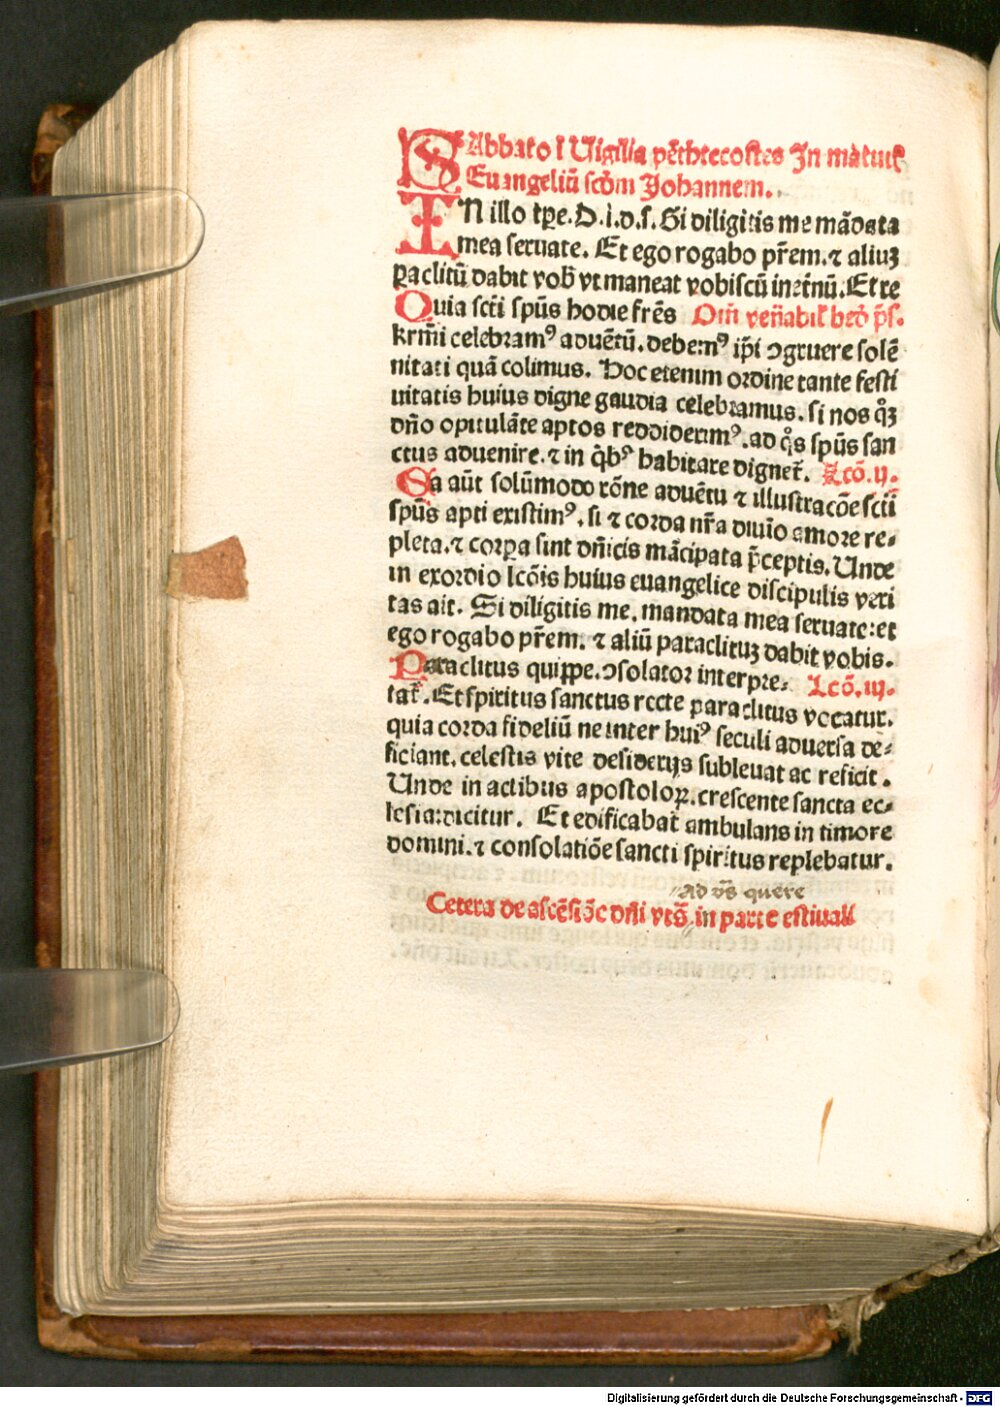 SAbbato ī Uigilia pēthtecostes In matutꝭ
Euangeliū scd̄m Johannem.
IN illo tp̄e. D.i.d.s. Si diligitis me mādata
mea seruate. Et ego rogabo pr̄em. ⁊ aliuꝫ
paclitū dabit vob̄ vt maneat vobiscū in et̄nū. Et re
Quia sct̄i sp̄us hodie frēs Om̄ ven̄abil̓ bed̓ p̄s.
krm̄i celebramꝰ aduētū. debemꝰ ip̄i ꝯgruere solē
nitati quā colimus. Hoc etenim ordine tante festi
uitatis huius digne gaudia celebramus. si nos qͦꝫ
dn̄o opitulāte aptos reddiderimꝰ. ad qͦs sp̄us san
ctus aduenire. ⁊ in qͥbꝰ habitare dignet̄. Lcō. ij.
Sa aūt solūmodo rōne aduētu ⁊ illustracōe sctī
sp̄us apti existimꝰ. si ⁊ corda nr̄a diuīo amore re⸗
pleta. ⁊ corpa sint dn̄icis mācipata p̄ceptis. Unde
in exordio lcōis huius euangelice discipulis veri
tas ait. Si diligitis me. mandata mea seruate: et
ego rogabo pr̄em. ⁊ aliū paraclituꝫ dabit vobis.
Paraclitus quippe. ꝯsolator interpre⸗ Lcō. iij.
tat̄. Et spiritus sanctus recte paraclitus vocatur.
quia corda fideliū ne inter huiꝰ seculi aduersa de⸗
ficiant. celestis vite desiderijs subleuat ac reficit.
Unde in actibus apostoloꝝ. crescente sancta ec⸗
lesia: dicitur. Et edificabat̄ ambulans in timore
domini. ⁊ consolatiōe sancti spiritus replebatur.
Ad vs̄ quere
Cetera de ascēsiōe dn̄i vts̄. in parte estiuali
Digitalisierung gefördert durch die Deutsche Forschungsgemeinschaft - DFG